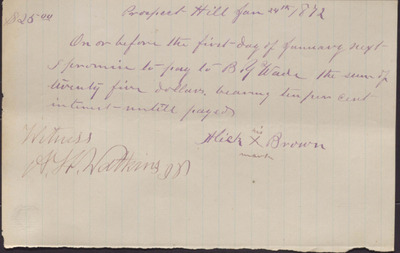 $25.00 Prospect Hill Jan 24th 1872
On or before the first day of January next
I promise to pay to B F Wade the sum of
twenty five dollars bearing ten per cent
interest untill paged
Witness
his
Alick X Brown
mark
Watkins